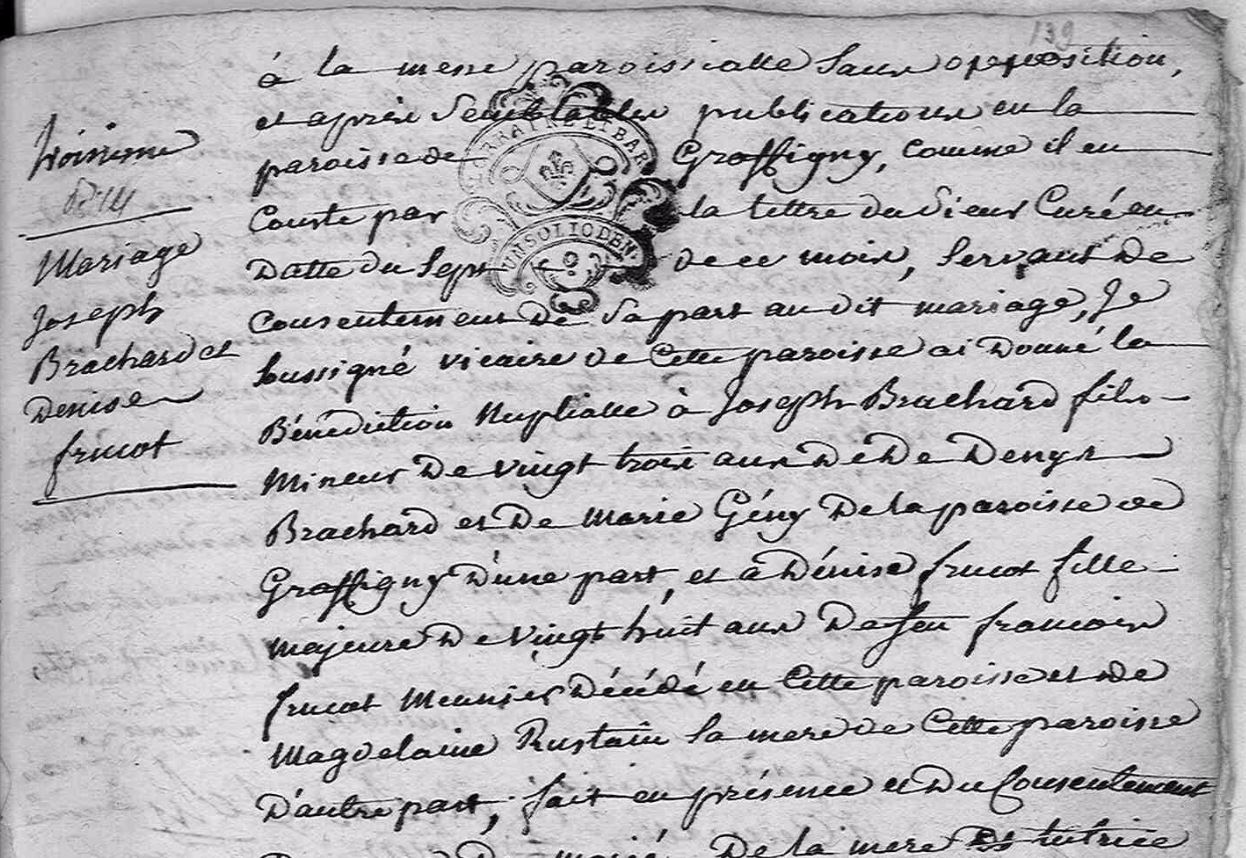 139
à la messe paroissialle sans opposition,
et après semblables publications en la
paroisse de Graffigny, comme il en
Conste par la lettre du Sieur Curé en
Datte du sept de ce mois, servant de
Consentement de sa part au dit mariage, Je
soussigné vicaire de Cette paroisse ai Donné la
Bénédiction Nuptialle à Joseph Brachard fils
Mineur De vingt trois ans De De Denys
Brachard et De Marie Gény De la paroisse de
Graffigny D'une part, et à Dénise frucot fille
majeure De vingt huit ans De feu francois
frucot Meunier Décédé en Cette paroisse et De
Magdelaine Rustain sa mere de Cette paroisse
D'autre part, fait en présence et Du Consentement
De la mere et tutrice
troisieme
Mariage
Joseph
Brachard et
Denise
frucot
LORRAINE ET BAR
UN SOL IO DEN.